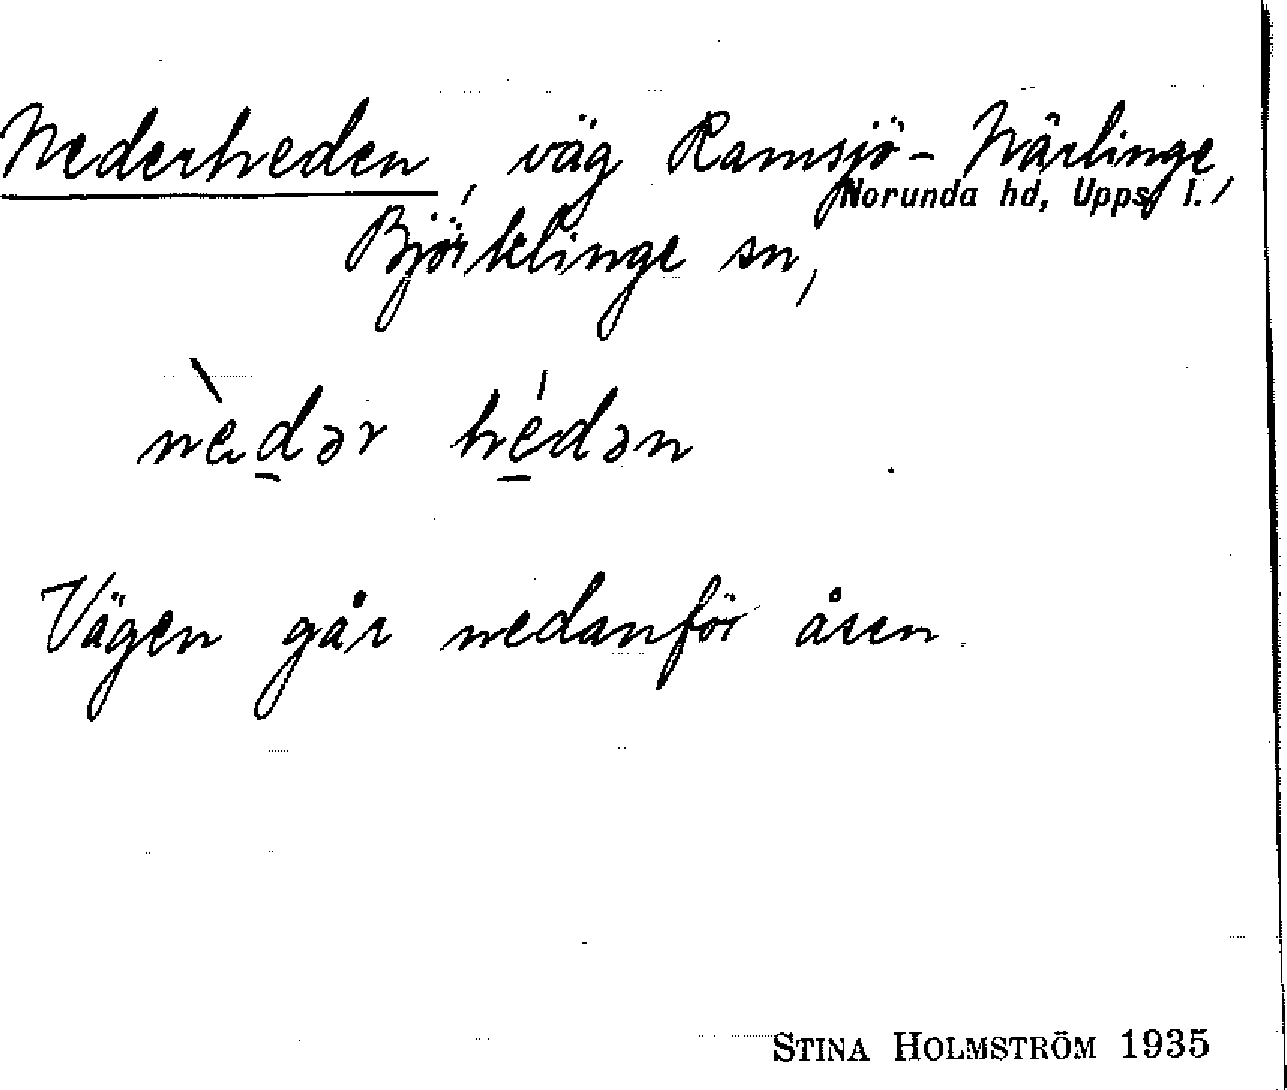 Nederheden, väg Ramsjö - Närlinge,
Norunda hd, Upps. l.
Björklinge sn,
nèdər hédən
Vägen går nedanför åsen.
STINA HOLMSTRÖM 1935